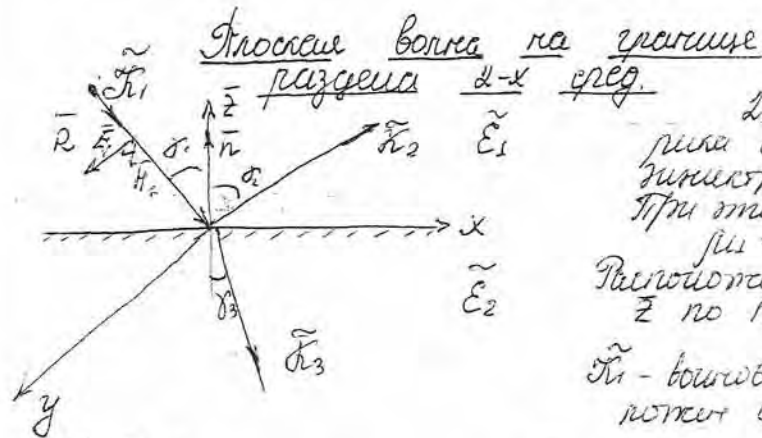 Плоская волна на границе
раздела 2-х сред.
K̃₁
R̄
E̅₁
H₁
γ₁
z̄
n̄
γ₂
K̃₂
Ẽ₁
x
Ẽ₂
γ₃
K̃₃
y
2
рика
диэлектр
При эт
μ₁
Расположе
z̄ по
K̃₁ - волнов